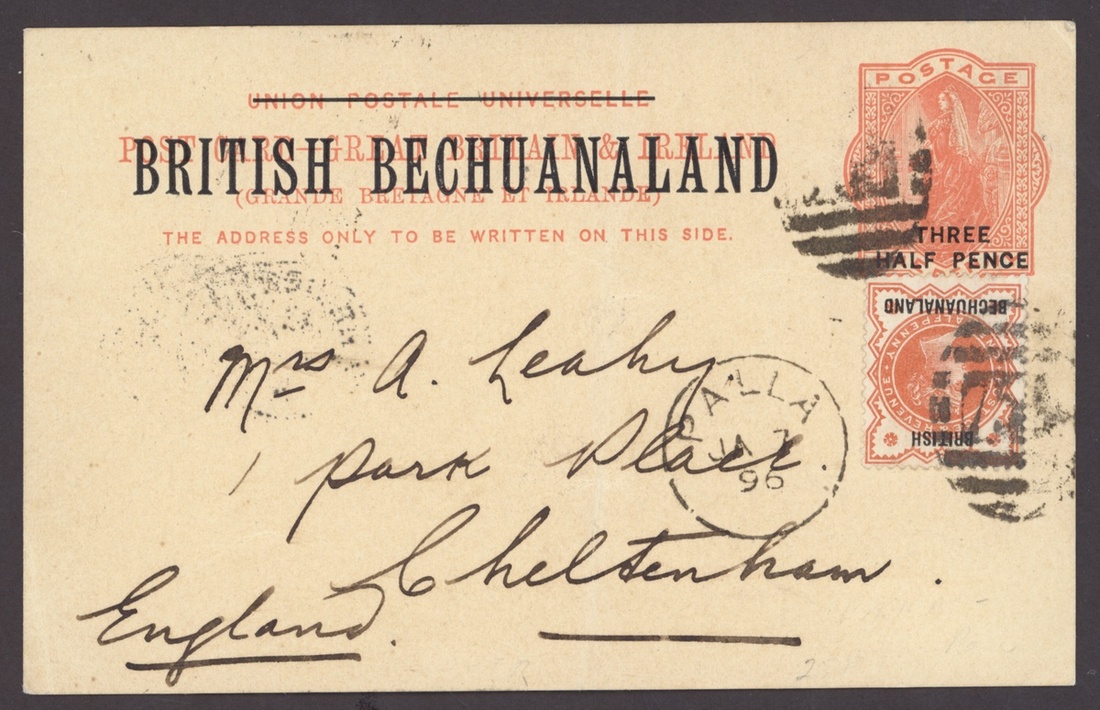 UNION POSTALE UNIVERSELLE
POST CARD–GREAT BRITAIN & IRELAND
BRITISH BECHUANALAND
(GRANDE BRETAGNE ET IRLANDE)
THE ADDRESS ONLY TO BE WRITTEN ON THIS SIDE.
POSTAGE
THREE
HALF PENCE
BRITISH
BECHUANALAND
POSTAGE & REVENUE
HALFPENNY
PALLA
JA 7
96
Mrs A. Leahy
1 Park Place.
Cheltenham.
England.